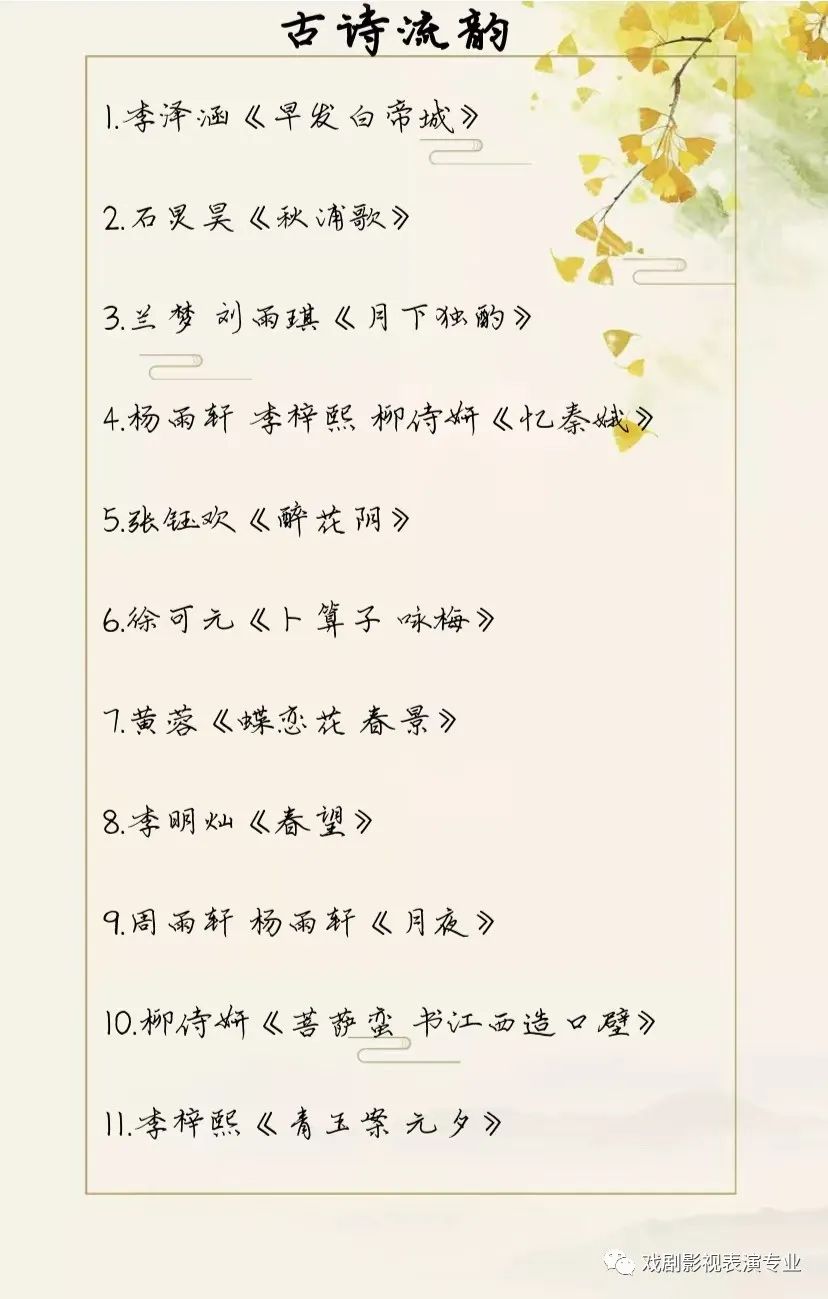 古诗流韵
1.李泽涵《早发白帝城》
2.石灵昊《秋浦歌》
3.兰梦 刘雨琪《月下独酌》
4.杨雨轩 李梓熙 柳侍妍《忆秦娥》
5.张钰欢《醉花阴》
6.徐可元《卜算子 咏梅》
7.黄蓉《蝶恋花 春景》
8.李明灿《春望》
9.周雨轩 杨雨轩《月夜》
10.柳侍妍《菩萨蛮 书江西造口壁》
11.李梓熙《青玉案 元夕》
戏剧影视表演专业